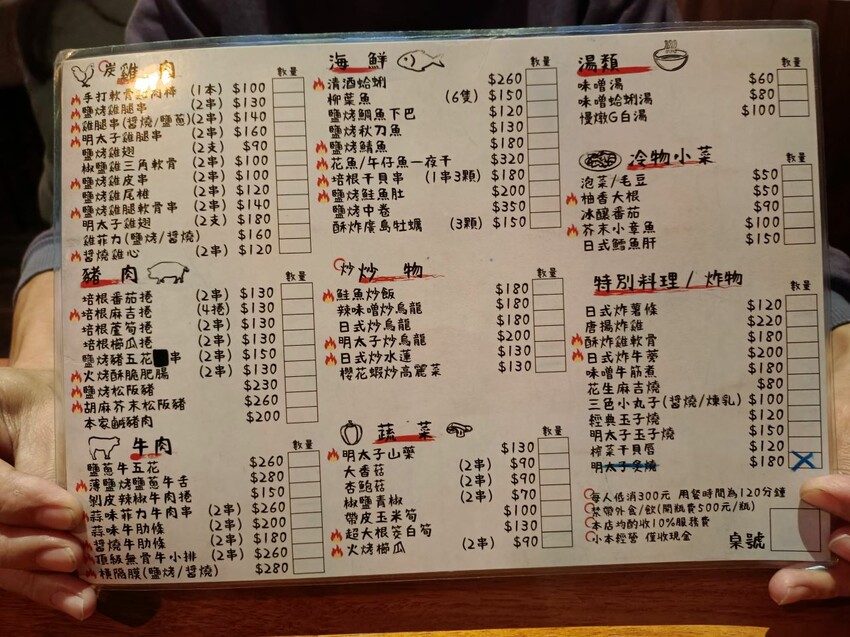 炭雞肉 數量
手打軟骨雞肉棒 (1本) $100
鹽烤雞腿串 (2串) $130
雞腿串(醬燒/鹽蔥) (2串) $140
明太子雞腿串 (2串) $160
鹽烤雞翅 (2支) $90
椒鹽雞三角軟骨 (2串) $100
鹽烤雞皮串 (2串) $100
鹽烤雞尾椎 (2串) $120
鹽烤雞腿軟骨串 (2串) $140
明太子雞翅 (2支) $180
雞菲力(鹽烤/醬燒) $160
醬燒雞心 (2串) $120
豬肉 數量
培根番茄捲 (2串) $130
培根麻吉捲 (4捲) $130
培根蘆筍捲 (2串) $130
培根櫛瓜捲 (2串) $130
鹽烤豬五花串 (2串) $150
火烤酥脆肥腸 (2串) $130
鹽烤松阪豬 $230
胡麻芥末松阪豬 $260
本家鹹豬肉 $200
牛肉 數量
鹽蔥牛五花 $260
薄鹽烤鹽蔥牛舌 $280
剝皮辣椒牛肉捲 $150
蒜味菲力牛肉串 (2串) $260
蒜味牛肋條 (2串) $200
醬燒牛肋條 (2串) $180
頂級無骨牛小排 (2串) $260
橫隔膜(鹽烤/醬燒) $280
海鮮 數量
清酒蛤蜊 $260
柳葉魚 (6隻) $150
鹽烤鯛魚下巴 $120
鹽烤秋刀魚 $130
鹽烤鯖魚 $180
花魚/午仔魚一夜干 $320
培根干貝串 (1串3顆) $180
鹽烤鮭魚肚 $200
鹽烤中卷 $350
酥炸廣島牡蠣 (3顆) $150
炒炒物 數量
鮭魚炒飯 $180
辣味噌炒烏龍 $180
日式炒烏龍 $180
明太子炒烏龍 $200
日式炒水蓮 $130
櫻花蝦炒高麗菜 $130
蔬菜 數量
明太子山藥 $130
大香菇 (2串) $90
杏鮑菇 (2串) $90
椒鹽青椒 (2串) $70
帶皮玉米筍 $100
超大根茭白筍 $130
火烤櫛瓜 (2串) $90
湯類 數量
味噌湯 $60
味噌蛤蜊湯 $80
慢燉G白湯 $100
冷物小菜 數量
泡菜/毛豆 $50
柚香大根 $50
冰釀番茄 $90
芥末小章魚 $100
日式鱈魚肝 $150
特別料理/炸物 數量
日式炸薯條 $120
唐揚炸雞 $220
酥炸雞軟骨 $180
日式炸牛蒡 $200
味噌牛筋煮 $180
花生麻吉燒 $80
三色小丸子(醬燒/煉乳) $100
經典玉子燒 $120
明太子玉子燒 $150
榨菜干貝唇 $120
明太子炙燒 $180
每人低消300元 用餐時間為120分鐘
禁帶外食/飲(開瓶費500元/瓶)
本店均酌收10%服務費
小本經營 僅收現金
桌號